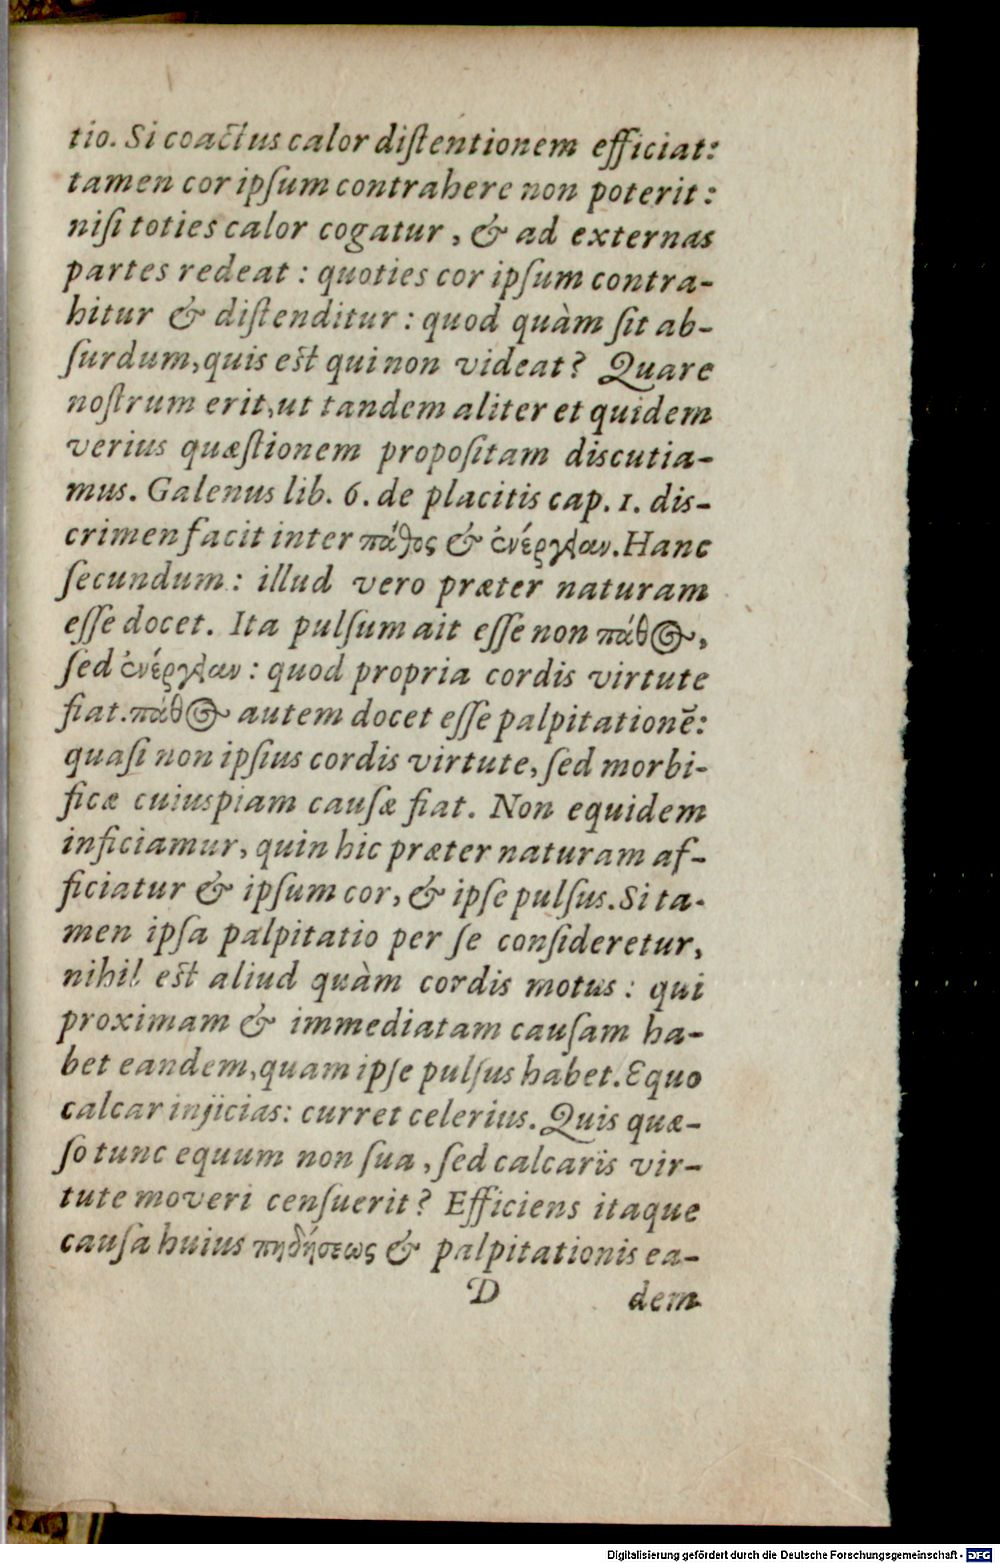 tio. Si coactus calor diſtentionem efficiat:
tamen cor ipſum contrahere non poterit:
niſi toties calor cogatur, & ad externas
partes redeat: quoties cor ipſum contra-
hitur & diſtenditur: quod quàm ſit ab-
ſurdum, quis est qui non videat? Quare
noſtrum erit, ut tandem aliter et quidem
verius quæſtionem propoſitam discutia-
mus. Galenus lib. 6. de placitis cap. 1. dis-
crimen facit inter πάθος & ἐνέργειαν. Hanc
ſecundum: illud vero præter naturam
eſſe docet. Ita pulſum ait eſſe non πάθος,
ſed ἐνέργειαν: quod propria cordis virtute
fiat. πάθος autem docet eſſe palpitationē:
quaſi non ipſius cordis virtute, ſed morbi-
ficæ cuiuspiam cauſæ fiat. Non equidem
inficiamur, quin hic præter naturam af-
ficiatur & ipſum cor, & ipſe pulſus. Si ta-
men ipſa palpitatio per ſe conſideretur,
nihil est aliud quàm cordis motus: qui
proximam & immediatam cauſam ha-
bet eandem, quam ipſe pulſus habet. Equo
calcar injicias: curret celerius. Quis quæ-
ſo tunc equum non ſua, ſed calcaris vir-
tute moveri cenſuerit? Efficiens itaque
cauſa huius πηδήσεως & palpitationis ea-
D dem
Digitalisierung gefördert durch die Deutsche Forschungsgemeinschaft - DFG